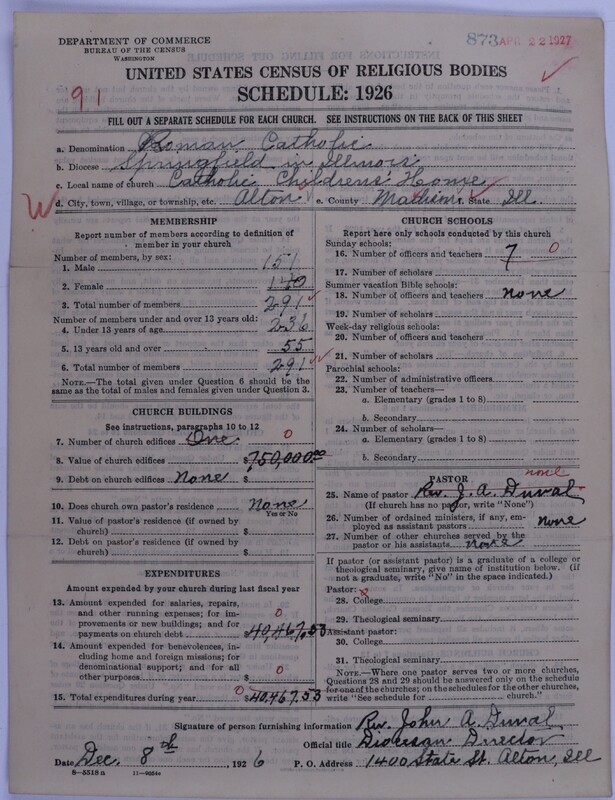 DEPARTMENT OF COMMERCE
BUREAU OF THE CENSUS
WASHINGTON
873 APR 22 1927
UNITED STATES CENSUS OF RELIGIOUS BODIES
SCHEDULE: 1926
91
FILL OUT A SEPARATE SCHEDULE FOR EACH CHURCH. SEE INSTRUCTIONS ON THE BACK OF THIS SHEET
a. Denomination Roman Catholic
b. Diocese Springfield in Illinois
c. Local name of church Catholic Childrens' Home
d. City, town, village, or township, etc. Alton e. County f. State Ill.
MEMBERSHIP
Report number of members according to definition of member in your church
Number of members, by sex:
1. Male 151
2. Female 140
3. Total number of members 291
Number of members under and over 13 years old:
4. Under 13 years of age 236
5. 13 years old and over 55
6. Total number of members 291
NOTE.—The total given under Question 6 should be the same as the total of males and females given under Question 3.
CHURCH BUILDINGS
See instructions, paragraphs 10 to 12
7. Number of church edifices One 0
8. Value of church edifices $750,000.00
9. Debt on church edifices None $
10. Does church own pastor's residence None
Yes or No
11. Value of pastor's residence (if owned by church) $
12. Debt on pastor's residence (if owned by church) $
EXPENDITURES
Amount expended by your church during last fiscal year
13. Amount expended for salaries, repairs, and other running expenses; for improvements or new buildings; and for payments on church debt $40,467.53 0
14. Amount expended for benevolences, including home and foreign missions; for denominational support; and for all other purposes $ 0
15. Total expenditures during year 0 $40,467.53
CHURCH SCHOOLS
Report here only schools conducted by this church
Sunday schools:
16. Number of officers and teachers 7 0
17. Number of scholars
Summer vacation Bible schools:
18. Number of officers and teachers none
19. Number of scholars
Week-day religious schools:
20. Number of officers and teachers
21. Number of scholars
Parochial schools:
22. Number of administrative officers
23. Number of teachers—
a. Elementary (grades 1 to 8)
b. Secondary
24. Number of scholars—
a. Elementary (grades 1 to 8)
b. Secondary
PASTOR
none
25. Name of pastor Rev. J. A. Duval
(If church has no pastor, write "None")
26. Number of ordained ministers, if any, employed as assistant pastors none
27. Number of other churches served by the pastor or his assistants none
If pastor (or assistant pastor) is a graduate of a college or theological seminary, give name of institution below. (If not a graduate, write "No" in the space indicated.)
Pastor:
28. College
29. Theological seminary
Assistant pastor:
30. College
31. Theological seminary
NOTE.—Where one pastor serves two or more churches, Questions 28 and 29 should be answered only on the schedule for one of the churches; on the schedules for the other churches, write "See schedule for church."
Signature of person furnishing information Rev. John A. Duval
Official title Diocesan Director
Date Dec. 8th, 1926 P. O. Address 1400 State St. Alton, Ill
8—5518 a 11—9684